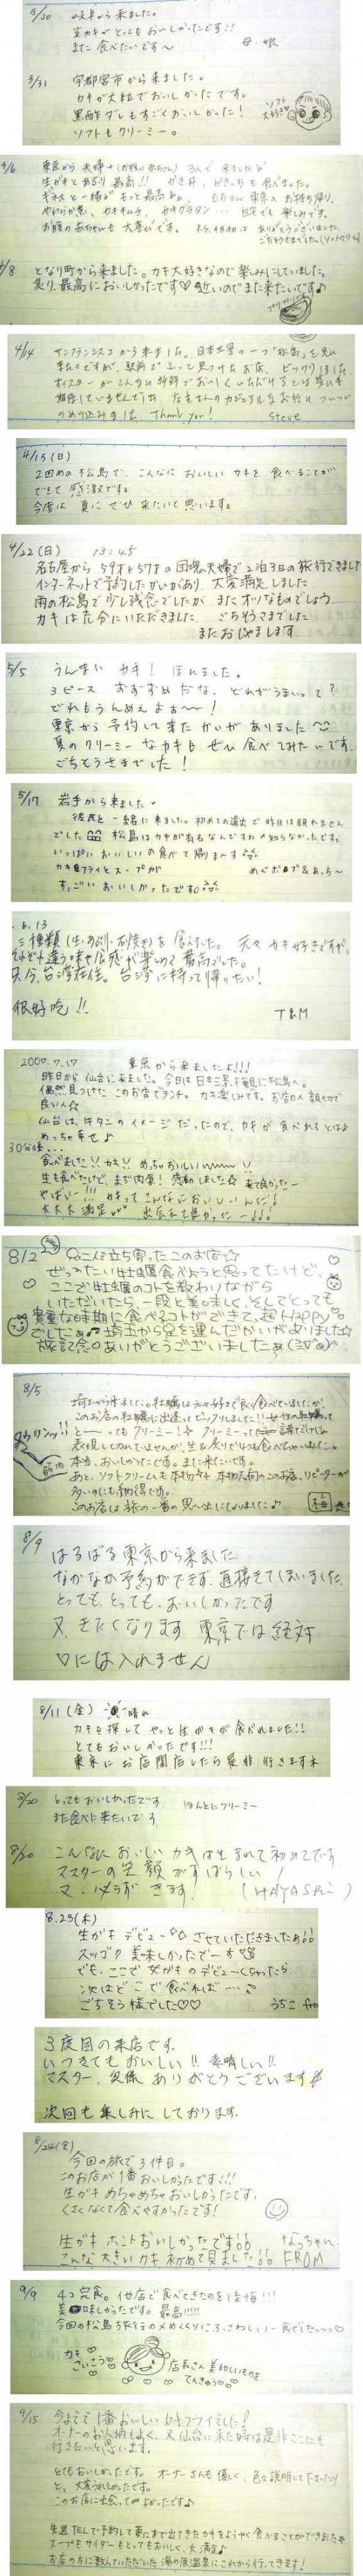 3/30 岐阜から来ました。
生カキがとってもおいしかったです!!
また食べたいです〜 母・娘
3/31 宇都宮市から来ました。
カキが大粒でおいしかったです。
黒酢ダレもすごくおいしかった!
ソフトもクリーミー。
ソフト
大好き
4/6 東京から夫婦+(お腹に赤ちゃん) 3人で来ました
4/8 となり町から来ました。カキ大好きなので楽しみにしていました。
炙り最高においしかったです♡近いのでまた来たいです♪
4/14 サンフランシスコから来ました。日本三景の一つ「松島」を見に
Thank you! Steve
4/15(日)
2回めの松島で、こんなにおいしいカキを食べることが
できて感激です。
今度は夏にぜひ来たいと思います。
4/22(日) 13:45
名古屋から59才と57才の団塊夫婦で2泊3日の旅行できました
インターネットで予約したかいがあり、大変満足しました
雨の松島で少し残念でしたが、またオツなものでしょう
カキは充分にいただきました。ごちそうさまでした
またおじゃまします
5/5 うんまいカキ! ほれました。
3ピースおすすめだな。どれがうまいって?
どれもうんめぇよぉ〜!
東京から予約して来たかいがありました^^
夏のクリーミーなカキもぜひ食べてみたいです。
ごちそうさまでした!
5/17 岩手から来ました。
彼氏と一緒に来ました。初めての遠出で昨日は眠れません
でした 松島はカキが有名なんですね♪知らなかったです。
いっぱいおいしいの食べて帰りま〜す
カキフライとスープが
すっごいおいしかったです。
6.13
三種類(生・炙り・石焼き)を食べた。元々カキ好きですが、
それぞれ違う味や食感が楽しめて最高でした。
只今、台湾在住。台湾に持って帰りたい!
很好吃!! T&M
2007.7.17 東京から来ましたよ!!!
昨日から仙台に来ました。今日は日本三景を観に松島へ。
偶然見つけたこのお店でランチ。カキ楽しみです。お店の人親切で
良い人☆
仙台は牛タンのイメージだったので、カキが食べれるとは♪
めっちゃ幸せ♪
30分後…
食べました!!カキ!!めっちゃおいしい〜〜!!
8/2 ふらっと立ち寄ったこのお店☆
ぜったい牡蠣食べようと思ってたけど、
ここで牡蠣のコトを教わりながら
いただいたら、一段と美味しく、そしてとっても
貴重な時期に食べるコトができて、超Happy
でしたぁ♫埼玉から足を運んだかいがありました☆
旅記念♡ありがとうございましたぁ
8/5 埼玉から来ました。牡蠣は元々好きで良く食べていましたが、
このお店の牡蠣に出逢ってビックリしました!!
本当、おいしかったです。また来たいです。
このお店は旅の一番の思い出になりました♪
8/9 はるばる東京から来ました
なかなか予約ができず、直接きてしまいました。
とっても、とっても、おいしかったです
又、きたくなります 東京では絶対
♡には入れません
8/11(金) 晴れ
カキを探してやっと生ガキが食べれました!!
とてもおいしかったです!!!
東京にお店開店したら是非行きますネ
8/20 とってもおいしかったです ほんとにクリーミー
また食べに来たいです
8/20 こんなにおいしいカキは生まれて初めてです
マスターの笑顔がすばらしい!
又、必らずきます。 (HAYASHI)
8.23(木)
生がキデビュー☆させていただきましたぁ!!
スッゴク美味しかったでーす
でも、ここで生がキのデビューしちゃったら
次はどこで食べれば……
ごちそう様でした♡♡
3度目の来店です。
いつきてもおいしい!!素晴しい!!
マスター、奥様ありがとうございます
次回も楽しみにしております。
8/24(金)
今回の旅で3件目。
このお店が1番おいしかったです!!!
生がキめちゃめちゃおいしかったです。
くさくなくて食べやすかったです!
生がキホントおいしかったです!! なっちゃん
こんな大きいカキ初めて見ました!! FROM
9/9 4コ完食。他店で食べてきたのを後悔!!!
美味しかったです。最高!!!!!
今回の松島旅行のメめくくりにふさわしい一食でしたっっ♡
カキ
さいこう♡
店長さん美味しいものを
9/15 今までで1番おいしいカキフライでした!
オーナーのお人柄もよく、又仙台に来た時は是非ここにも
行きたいと思います。
とてもおいしかったです。オーナーさんも優しく、色々説明して下さったり
と。大変うれしかったです。
このお店に出会ってよかったです♪
先週TELで予約して夢にまで出てきたカキをようやく食べることができました
スープもサイダーもとってもおいしく、大満足♪
お店の方に教えていただいた湯の原温泉にこれから行ってきます!